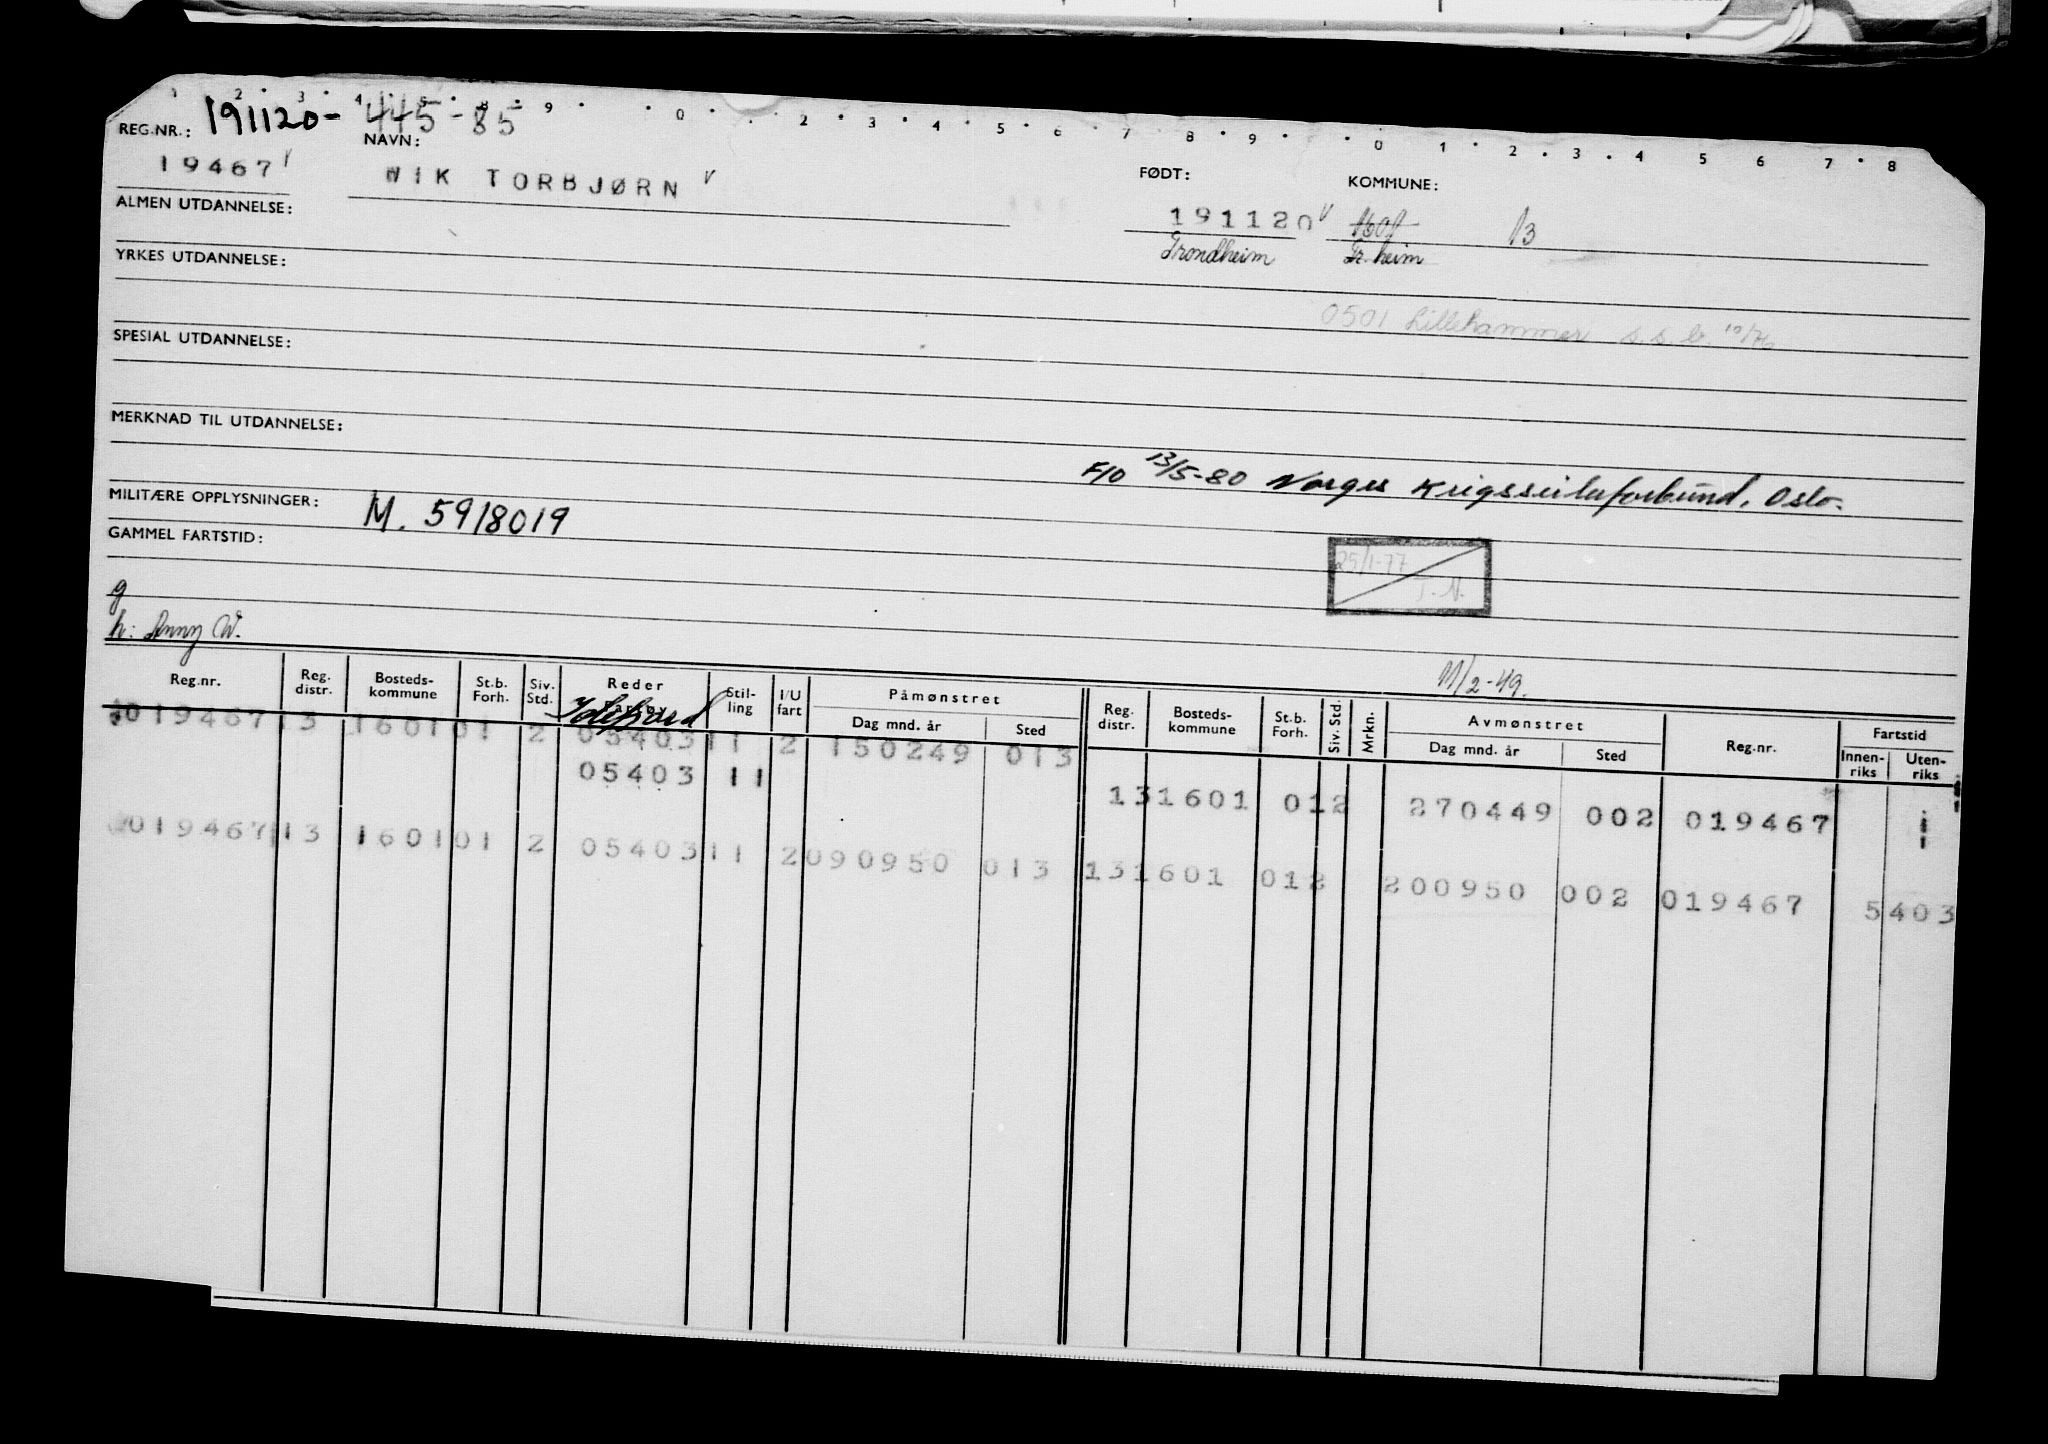 1 2 3 4 5 8 9 0 2 3 4 5 6 7 8 9 0 1 2 3 4 5 6 7 8
REG.NR.: 191120-445-85
NAVN: FØDT: KOMMUNE:
19467 V WIK TORBJØRN V 191120 V 1601 13
ALMEN UTDANNELSE: Trondheim Tr.heim
YRKES UTDANNELSE:
0501 Lillehammer s.s.b. 10/76
SPESIAL UTDANNELSE:
MERKNAD TIL UTDANNELSE:
F/O 13/5-80 Norges Krigsseilerforbund, Oslo.
MILITÆRE OPPLYSNINGER: M. 5918019
GAMMEL FARTSTID:
25/1-77 T.N.
g
h: Anny W.
M/2-49.
Reg.nr. Reg. distr. Bosteds-kommune St.b. Forh. Siv. Std. Reder Stil-ling I/U fart Påmønstret Dag mnd. år Sted Reg. distr. Bosteds-kommune St.b. Forh. Siv. Std. Mrkn. Avmønstret Dag mnd. år Sted Reg.nr. Fartstid Innen-riks Uten-riks
019467 13 1601 01 2 05403 11 2 150249 013
05403 11 13 1601 01 2 270449 002 019467
019467 13 1601 01 2 05403 11 2 090950 013 13 1601 01 2 200950 002 019467 5403